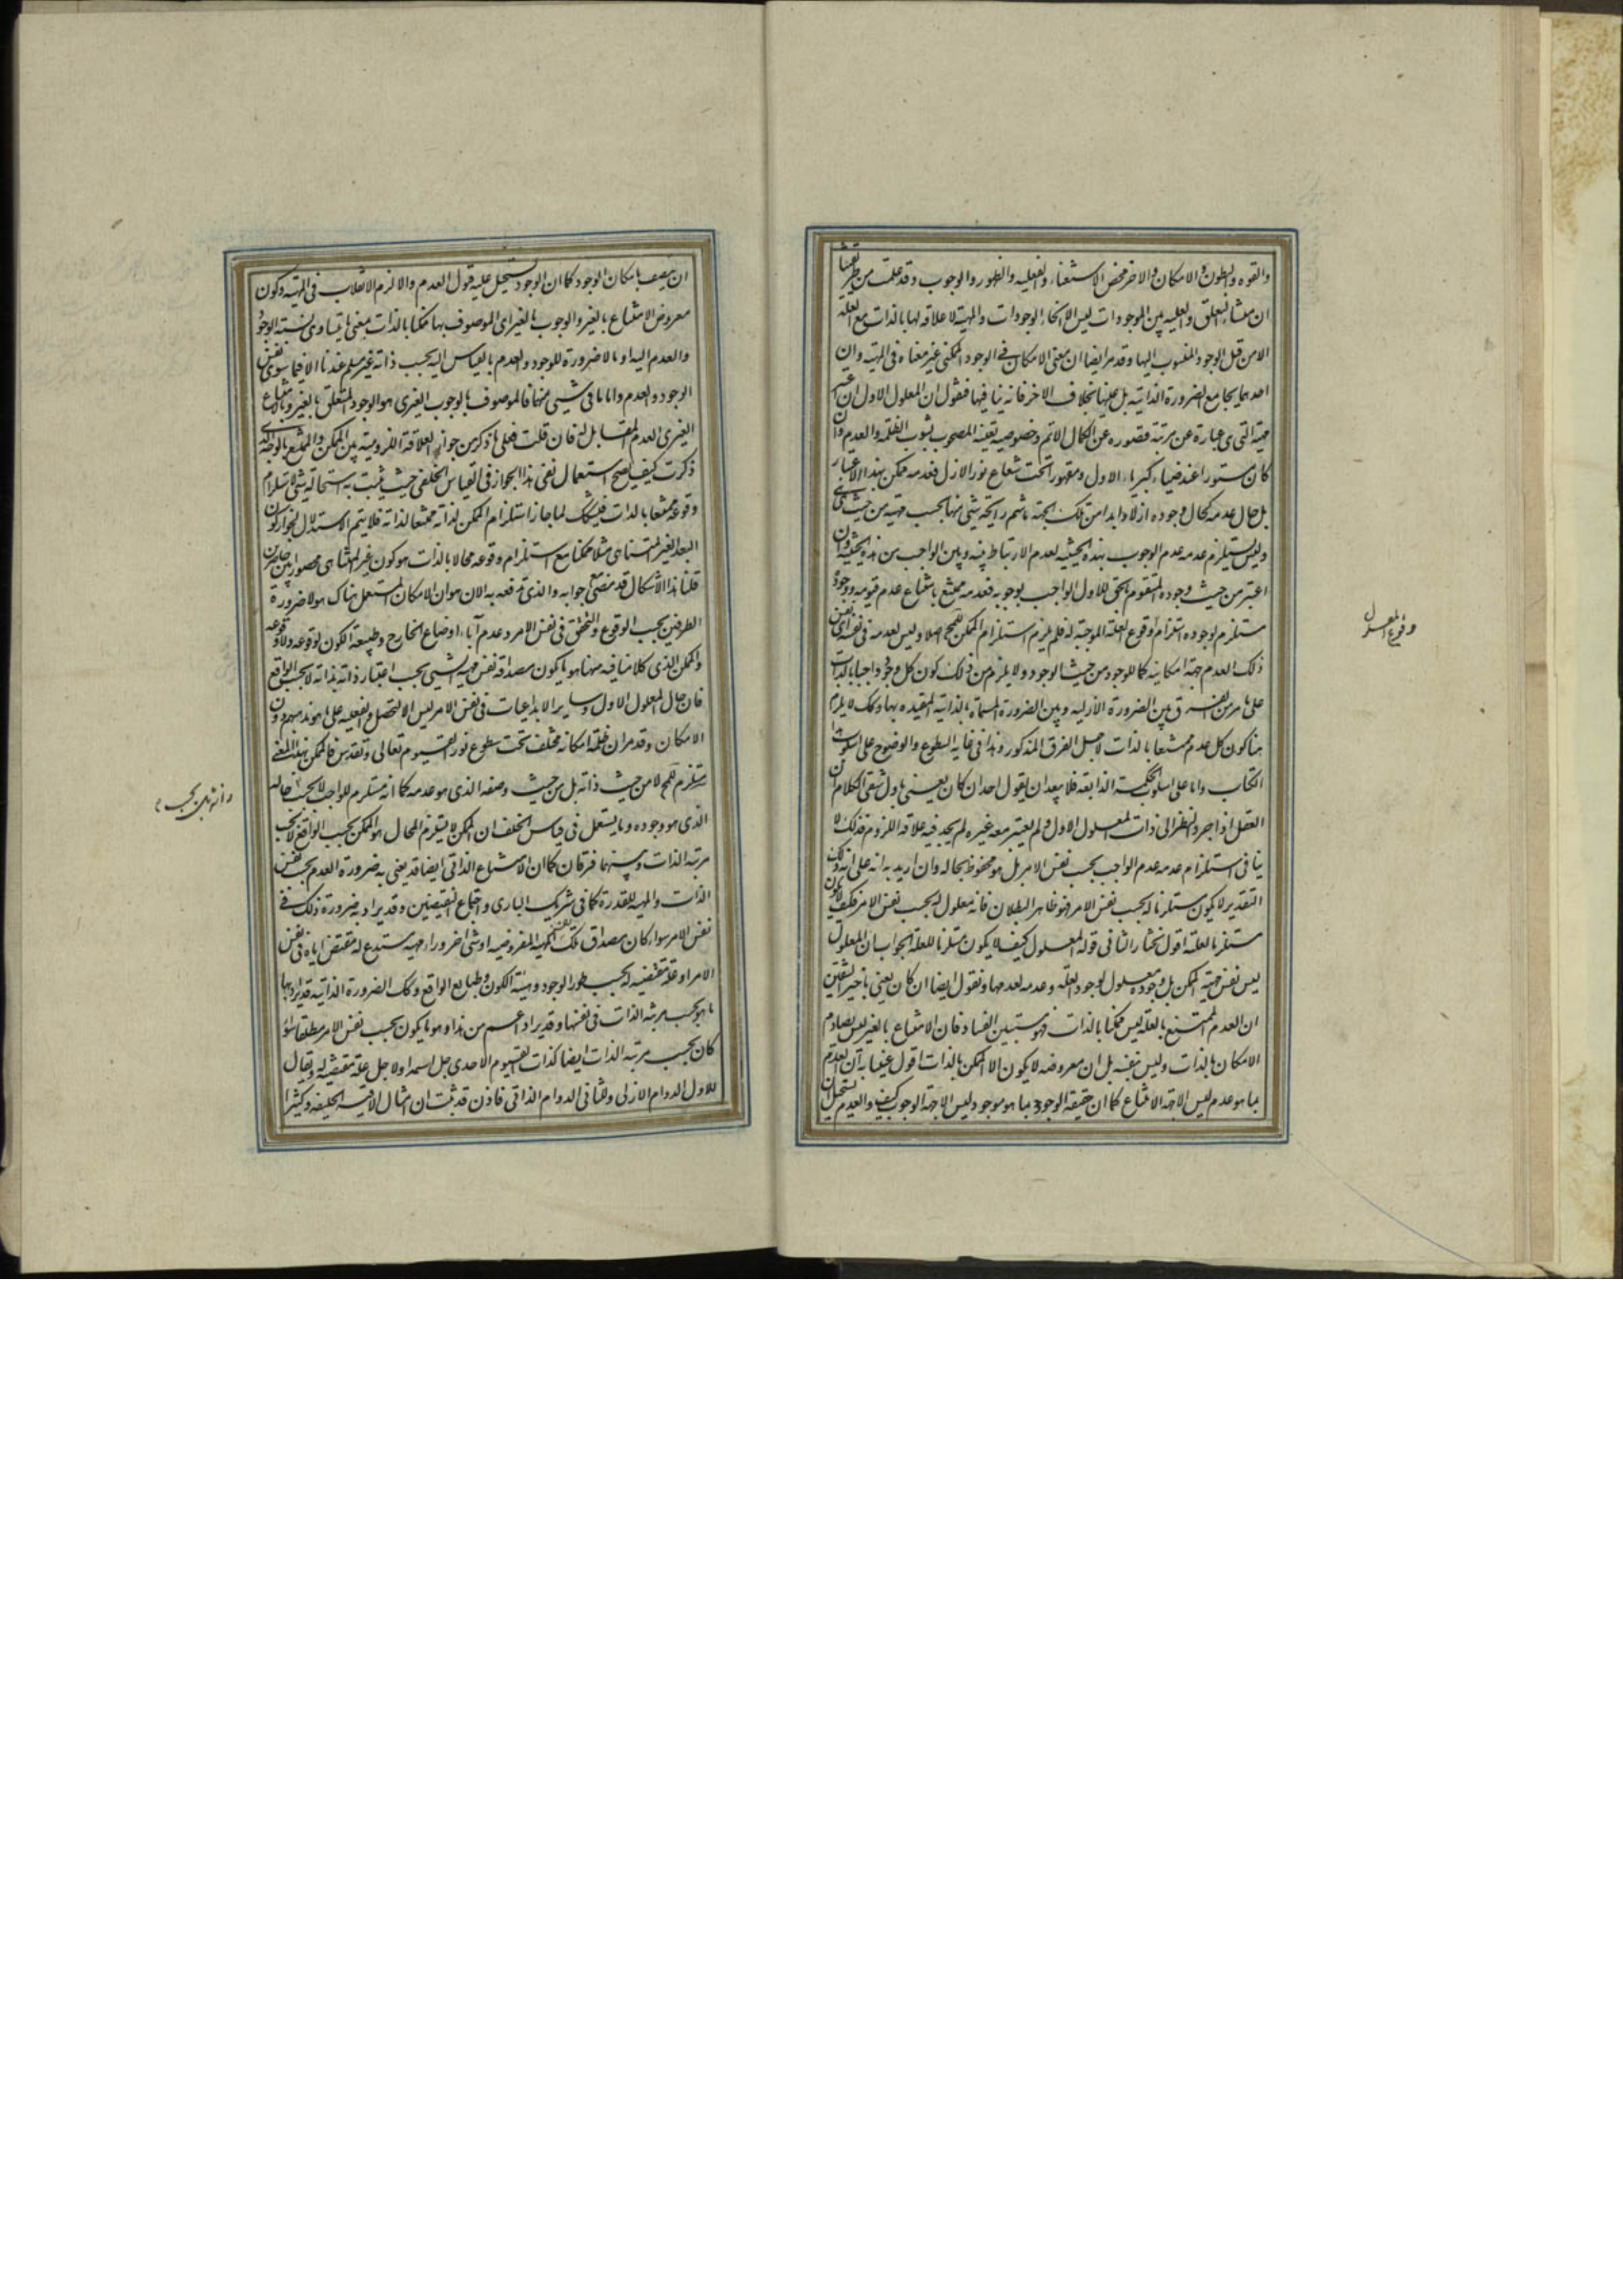 والقوه والبطون والامكان والاخر محض الاستغناء والفعليه والظهور والوجوب وقد علمت من طريقتنا
ان منشاء التعلق والعليه بين الموجودات ليس الا انحاء الوجودات والمهية لا علاقه لها بالذات مع العله
الا من قبل الوجود المنسوب اليها وقد مر ايضا ان معنى الامكان في الوجود الممكنى غير معناه فى المهيه وان
احدهما يجامع الضرورة الذاتيه بل عينها بخلاف الاخر فانه ينافيها فنقول ان المعلول الاول ان اعتبر
مهيته التى هى عبارة عن مرتبة قصوره عن الكمال الاتم وخصوصية تعينه المصحوب بشوب الظلمه والعدم وان
كان مستورا عند ضياء كبرياء الاول ومقهورا تحت شعاع نور الازل فعدمه ممكن بهذا الاعتبار
بل حال عدمه كحال وجوده ازلا وابدا من تلك الجهة ما شم رايحة شئ منها بحسب مهيته من حيث هى
وليس يستلزم عدمه عدم الوجوب بهذه الحيثيه لعدم الارتباط بينه وبين الواجب من هذه الحيثيه وان
اعتبر من حيث وجوده المتقوم بالحق الاول الواجب بوجوبه فعدمه ممتنع بامتناع عدم قيومه ووجوده
مستلزم لوجوده استلزام وقوع العلة الموجبة له فلم يلزم استلزام الممكن للمحال اصلا وليس لعدمه فى نفسه اى نفس
ذلك العدم جهة امكانية كما للوجود من حيث الوجود ولا يلزم من ذلك كون كل وجود واجبا بالذات
على ما مر من الفرق بين الضرورة الازليه وبين الضرورة المسماة بالذاتية المقيده بها وكك لا يلزم
هنا كون كل عدم ممتنعا بالذات لاجل الفرق المذكور وهذا فى غايه السطوع والوضوح على اسلوب هذا
الكتاب واما على اسلوب الحكمة الذايعة فلا يبعد ان يقول احد ان كان يعنى باول شقى الكلام ان
العقل اذا جرد النظر الى ذات المعلول الاول ولم يعتبر معه غيره لم يجد فيه علاقه اللزوم فذلك لا
ينافى استلزام عدمه عدم الواجب بحسب نفس الامر بل هو محفوظ بحاله وان اريد به انه على ذلك
التقدير لا يكون مستلزما له بحسب نفس الامر فهو ظاهر البطلان فانه معلول له بحسب نفس الامر فكيف لا يكون
مستلزما لعلته اقول نختار الثانى قوله المعلول كيف لا يكون مستلزما للعله الجواب ان المعلول
ليس نفس مهية الممكن بل وجوده معلول لوجود العله وعدمه لعدمها ونقول ايضا ان كان يعنى باخير الشقين
ان العدم الممتنع بالعله ليس ممكنا بالذات فهو مستبين الفساد فان الامتناع بالغير ليس يصادم
الامكان بالذات وليس ينفيه بل ان معروضه لا يكون الا الممكن بالذات اقول عنينا به ان العدم
بما هو عدم ليس الا جهة الامتناع كما ان حقيقة الوجود بما هو موجود ليس الا جهة الوجوب كيف والعدم يستحيل
وقوع المعلول
ان يتصف بامكان الوجود كما ان الوجود يستحيل عليه قبول العدم والا لزم الانقلاب فى المهيه وكون
معروض الامتناع بالغير والوجوب بالغير اى الموصوف بها ممكنا بالذات بمعنى ما يتساوى نسبته الوجود
والعدم اليه او بلا ضرورة للوجود والعدم بالقياس اليه بحسب ذاته غير مسلم عندنا الا فيما سوى نفس
الوجود والعدم واما باقى شئ منهما فالموصوف بالوجوب الغيرى هو الوجود المتعلق بالغير وبالامتناع
الغيرى العدم المقابل له فان قلت فعلى ما ذكر من جواز العلاقة اللزومية بين الممكن والممتنع بالوجه الذى
ذكرت كيف يصح استعمال نفى هذا الجواز فى القياس الخلفى حيث يثبت به استحالة شئ لاستلزام
وقوعه ممتنعا بالذات فيشكك لما جاز استلزام الممكن لذاته ممتنعا لذاته فلا يتم الاستدلال لجواز كون
البعد الغير المتناهى مثلا ممكنا مع استلزام وقوعه محالا بالذات هو كون غير المتناهى محصورا بين حاصرين
قلنا هذا الاشكال قد مضى مع جوابه والذى ندفعه به الان هو ان الامكان المستعمل هناك هو لا ضرورة
الطرفين بحسب الوقوع والتحقق فى نفس الامر وعدم آباء اوضاع الخارج وطبيعة الكون لوقوعه ولا وقوعه
والممكن الذى كلامنا فيه ههنا هو ما يكون مصداقه نفس مهيه الشئ بحسب اعتبار ذاته بذاته لا بحسب الواقع
فان حال المعلول الاول وساير الابداعيات فى نفس الامر ليس الا التحصل والفعليه على ما هو مذهبهم دون
الامكان وقد مر ان ظلمة امكانه مختلف تحت سطوع نور القيوم تعالى وتقدس فالممكن بهذا المعنى
يستلزم للمحال لا من حيث ذاته بل من حيث وصفه الذى هو عدمه كما انه مستلزم للواجب لا بحسب حاله
الذى هو وجوده وما يستعمل فى قياس الخلف ان الممكن لا يستلزم المحال هو الممكن بحسب الواقع لا بحسب
مرتبة الذات وبينهما فرقان كما ان الامتناع الذاتى ايضا قد يعنى به ضرورة العدم بحسب نفس
الذات والمهيه المقدرة كما فى شريك البارى واجتماع النقيضين وقد يراد به ضرورة ذلك فى
نفس الامر سواء كان مصداق تلك نفس المهيه المفروضه او شئ اخر وراء مهيه يستدعى له مقتض اياه فى نفس
الامر او علة مقتضيه له بحسب طور الوجود وهيئة الكون وطبايع الواقع وكك الضرورة الذاتيه قد يراد بها
ما هو بحسب مرتبة الذات فى نفسها وقد يراد اعم من هذا وهو ما يكون بحسب نفس الامر مطلقا سواء
كان بحسب مرتبة الذات ايضا كذات القيوم الاحدى جل اسمه اولا جل علة مقتضيه له ويقال
للاول الدوام الازلى وللثانى الدوام الذاتى فاذن قد ثبت ان امثال الاقيسه الخلفيه وكثيرا